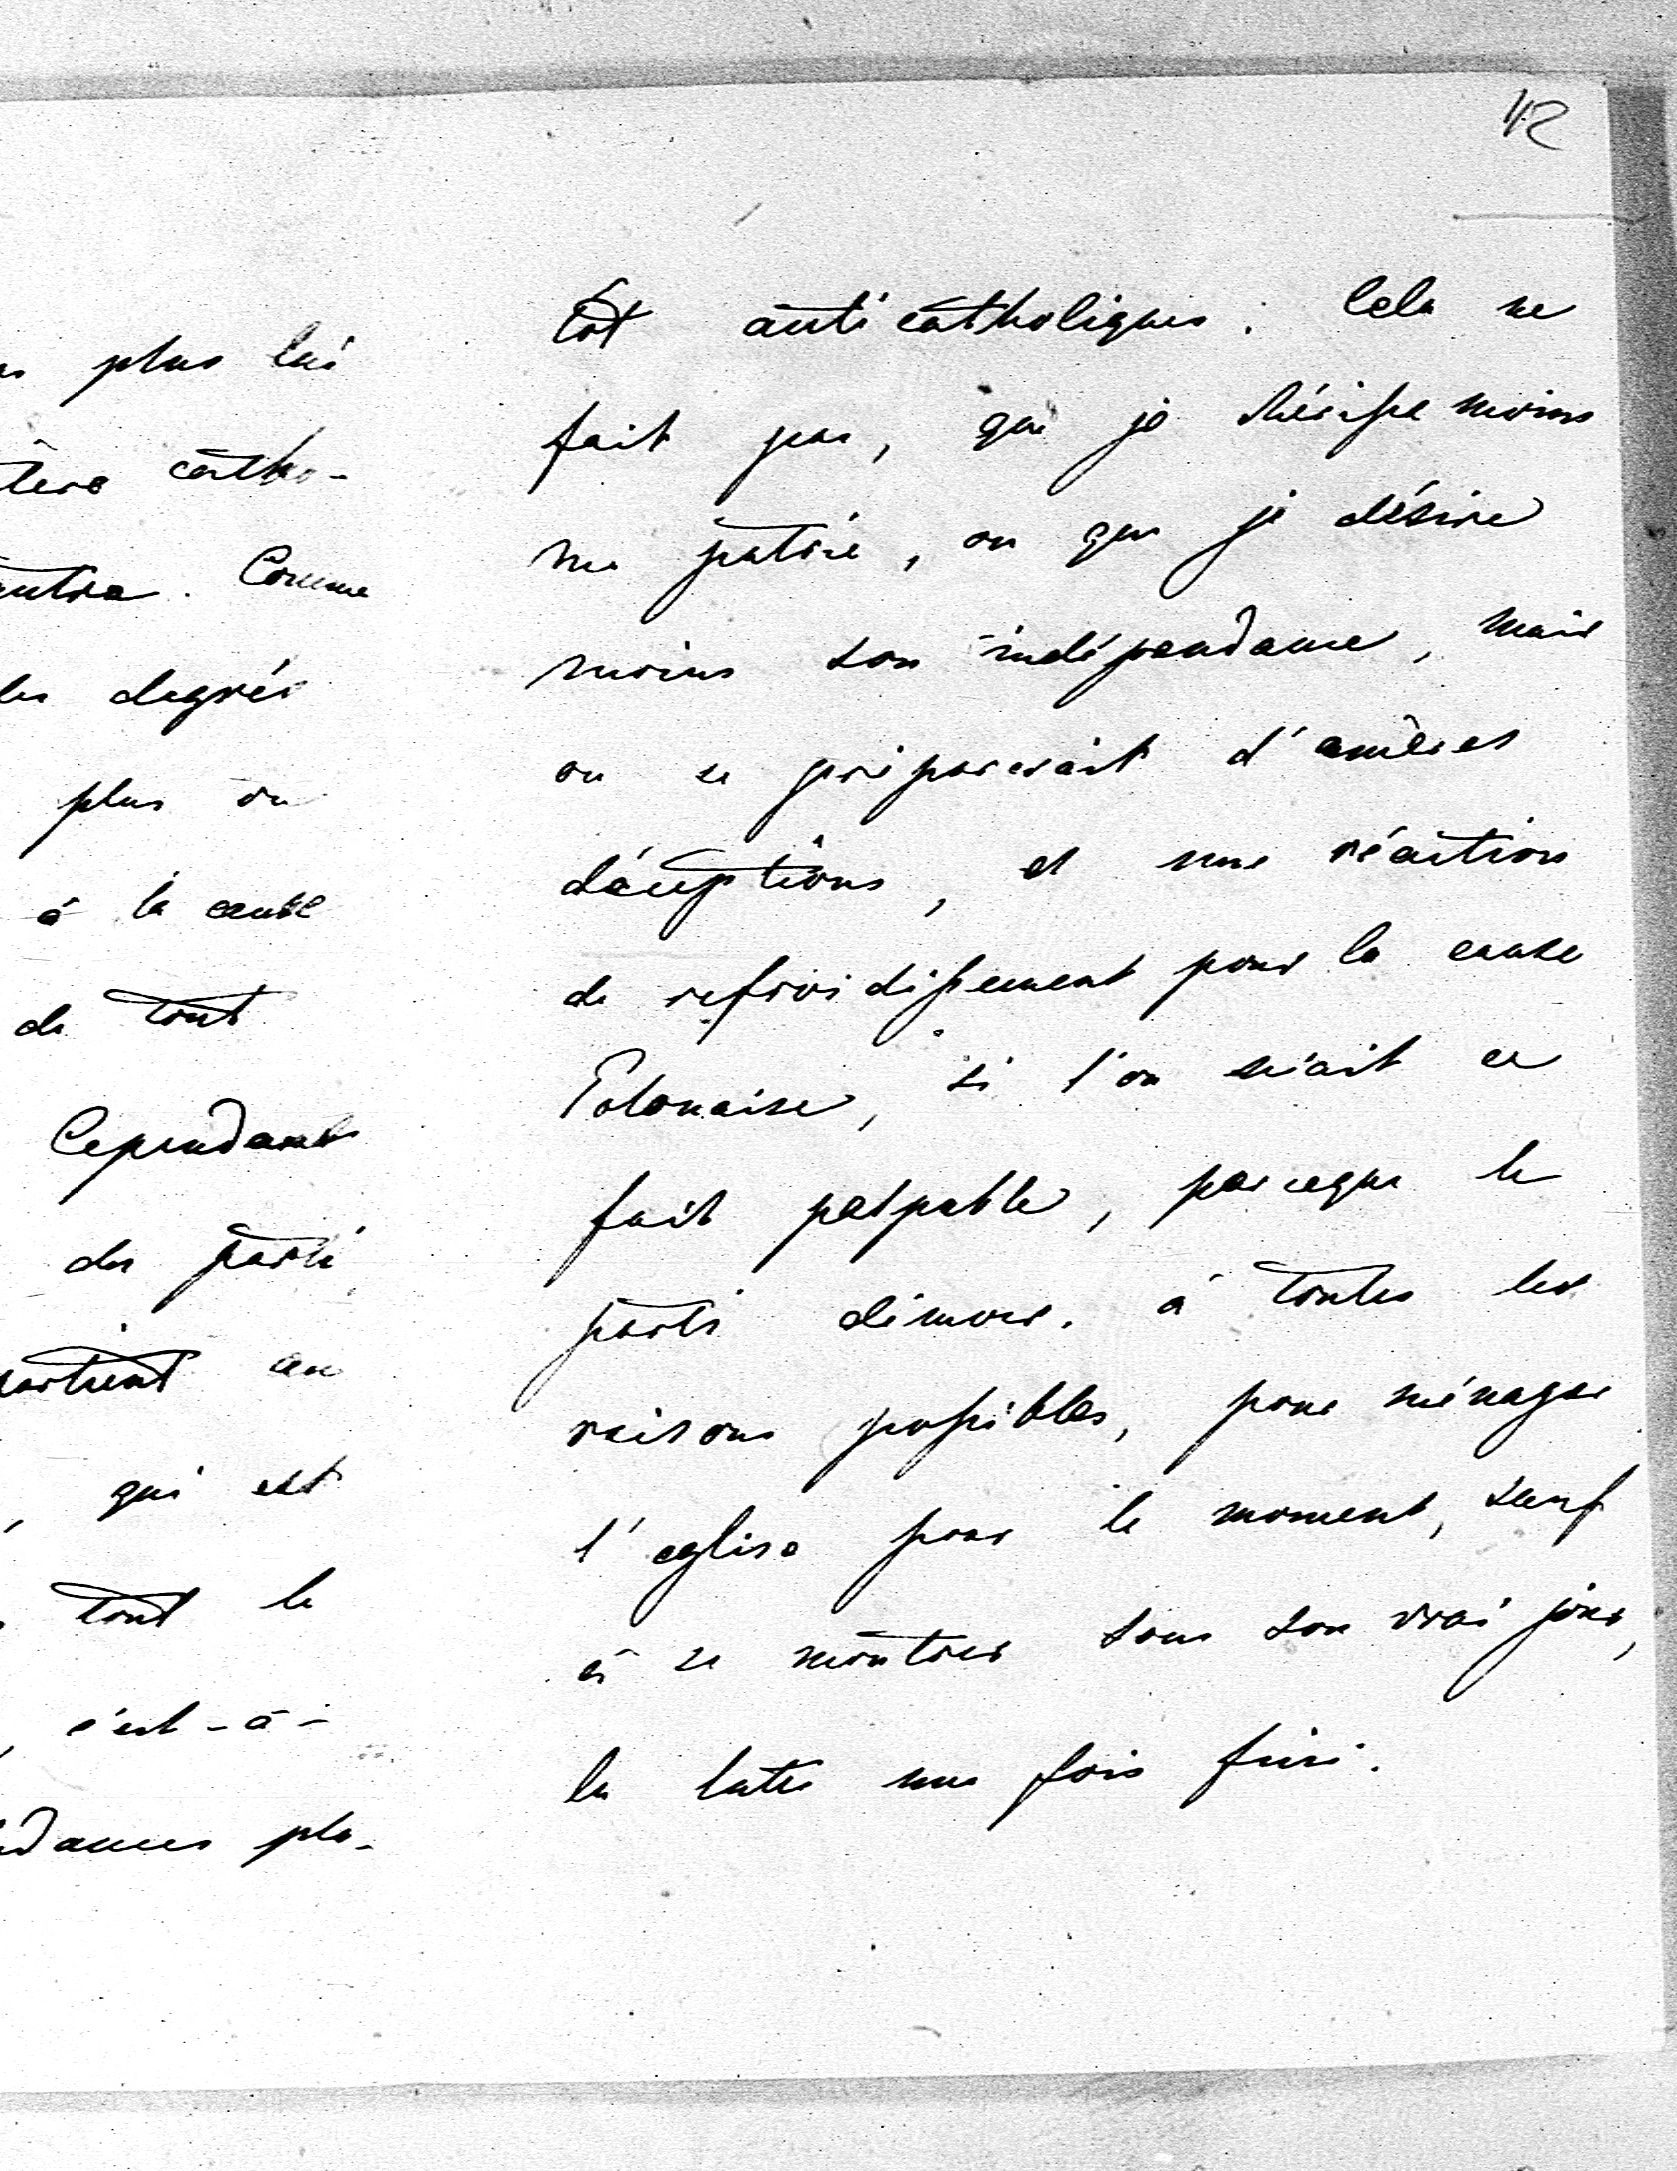 42
s plus lui
tère catho-
autre. Comme
les degrés
plus ou
à la cause
de tout
Cependant
du parti
partient au
, qui est
tout le
, c'est-à-
dances plu-
tôt anticatholiques. Cela ne
fait pas, que je chérisse moins
ma patrie, ou que je désire
moins son indépendance, mais
on se préparerait d'amères
déceptions, et une réaction
de refroidissement pour la cause
Polonaise, si l'on niait ce
fait palpable, parceque le
parti dimocr. à toutes les
raisons possibles, pour ménager
l'eglise pour le moment, sauf
à se montrer sous son vrai jour,
la lutte une fois finie.